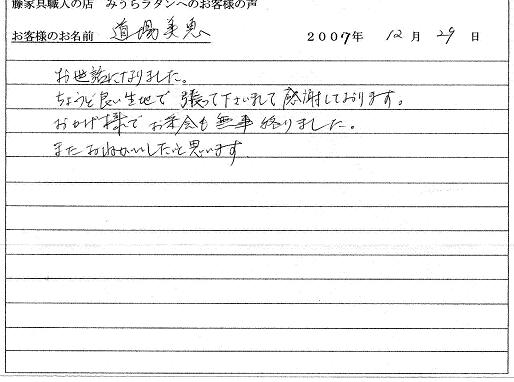 藤家具職人の店 みうらラタンへのお客様の声
お客様のお名前 道場美恵 2007年 12月 29日
お世話になりました。
ちょうど良い生地で張って下さいまして感謝しております。
おかげ様でお茶会も無事終りました。
またおねがいしたいと思います